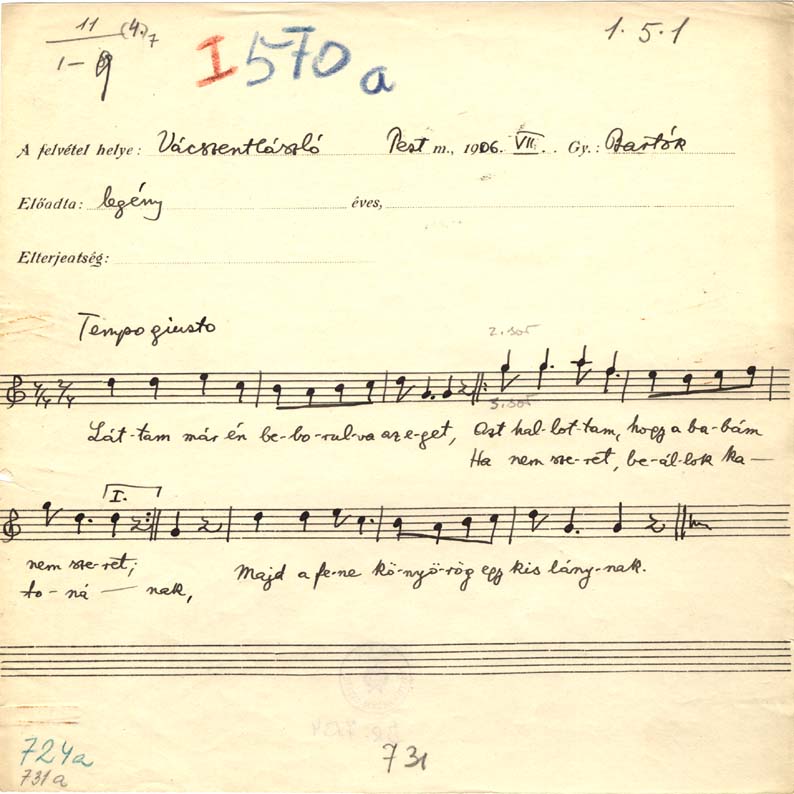 11 (4.)7
1– 9
I 570 a
1. 5. 1
A felvétel helye: Vácszentlászló Pest m., 1906. VII. Gy.: Bartók
Előadta: legény éves,
Elterjedtség:
Tempo giusto
2. sor
3. sor
Lát-tam már én be-bo-rul-va az e-get, Azt hal-lot-tam, hogy a ba-bám
Ha nem sze-ret, be-ál-lok ka–
I.
nem sze-ret; Majd a fe-ne kö-nyö-rög egy kis lány-nak.
to-ná — nak,
724a
731a
731